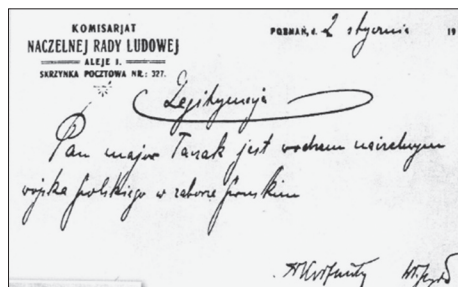 KOMISARJAT
NACZELNEJ RADY LUDOWEJ
ALEJE 1.
SKRZYNKA POCZTOWA NR.: 327.
POZNAŃ, d. 2 stycznia 19
Legitymacja
Pan major Tanak jest wodzem naczelnym
wojska polskiego w zaborze pruskim